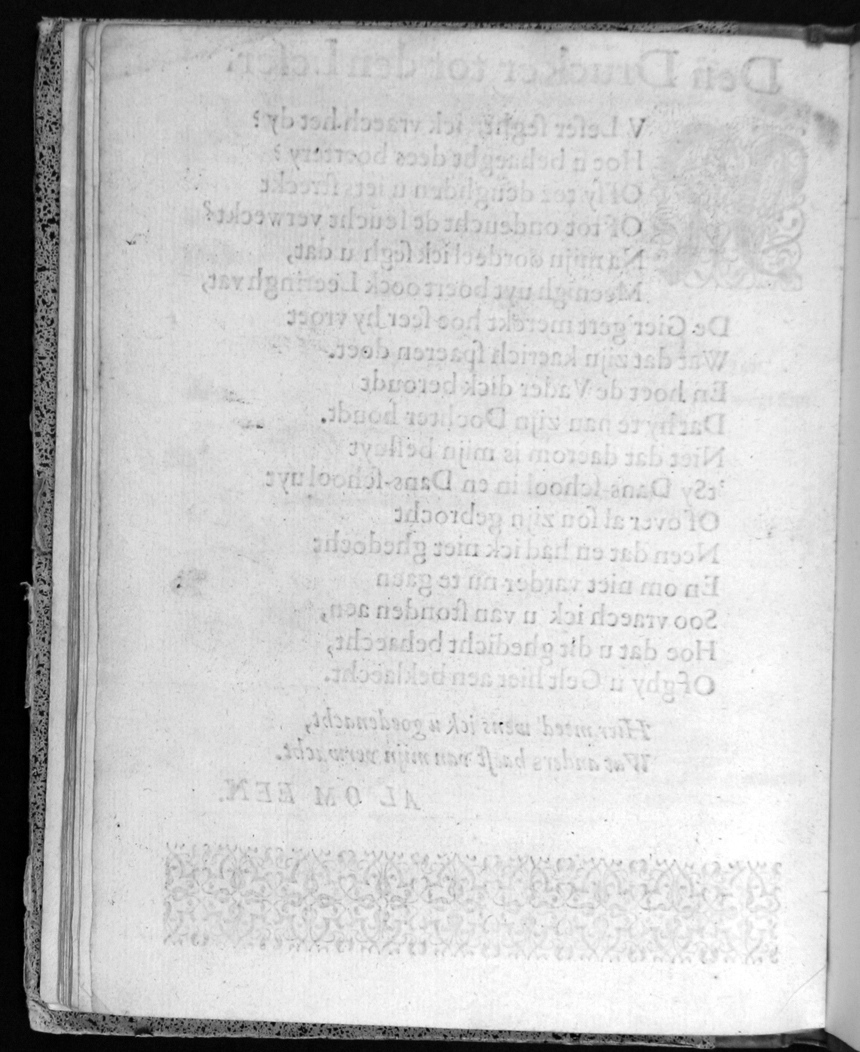 Den Drucker tot den Leser.
V Leser seght, ick vraech het dy?
Hoe u behaeght dees boertery?
Of sy tot deughden u iets streckt
Of tot ondeucht de Jeucht verweckt?
Na mijn oordeel ick segh u dat,
Meenigh uyt boert oock Leeringh vat,
De Gier'gert merckt hoe seer hy vroet
Wat dat zijn kaerich spaeren doet.
En hoet de Vader dick berouwdt
Dat hy te nau zijn Dochter houdt.
Niet dat daerom is mijn besluyt
'tSy Dans-school in en Dans-school uyt
Of over al sou zijn gebrocht
Neen dat en had ick niet ghedocht
En om niet varder nu te gaen
Soo vraech ick u van stonden aen,
Hoe dat u dit ghedicht behaecht,
Of ghy u Gelt hier aen beklaecht.
Hier meed' wens ick u goedenacht,
Wat anders haest van mijn verwacht.
AL OM EEN.